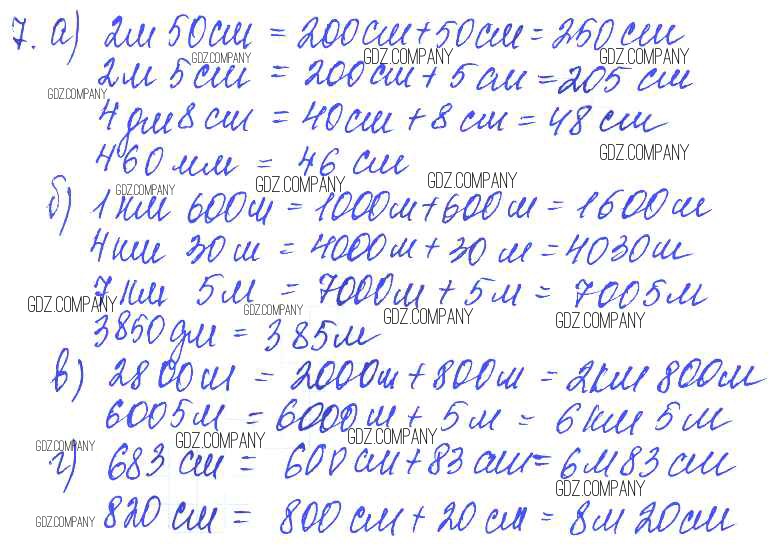 7. а) 2м 50см = 200см+50см = 250см
GDZ.COMPANY GDZ.COMPANY GDZ.COMPANY
2м 5см = 200см + 5см = 205 см
GDZ.COMPANY
4дм 8см = 40см + 8см = 48см
460мм = 46 см
GDZ.COMPANY
GDZ.COMPANY GDZ.COMPANY GDZ.COMPANY
б) 1км 600м = 1000м+600м = 1600м
4км 30м = 4000м + 30м = 4030м
7км 5м = 7000м + 5м = 7005м
GDZ.COMPANY GDZ.COMPANY GDZ.COMPANY GDZ.COMPANY
3850дм = 385м
в) 2800м = 2000м + 800м = 2км 800м
6005м = 6000м + 5м = 6км 5м
GDZ.COMPANY GDZ.COMPANY GDZ.COMPANY
г) 683 см = 600см + 83см = 6м 83 см
GDZ.COMPANY
820 см = 800 см + 20см = 8м 20см
GDZ.COMPANY